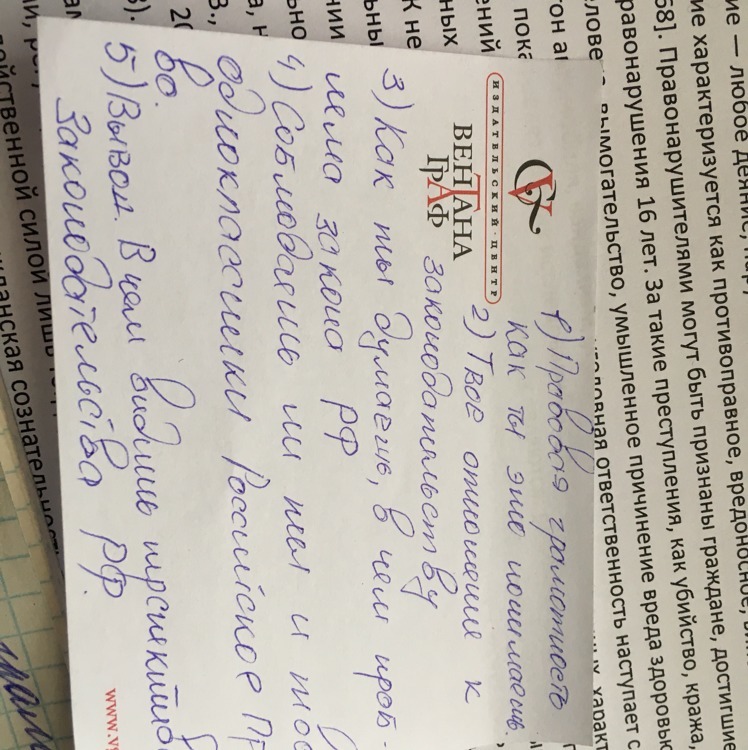 ние — любое деяние,
ие характеризуется как противоправное, вредоносное,
68]. Правонарушителями могут быть признаны граждане, достигшие
равонарушения 16 лет. За такие преступления, как убийство, кража,
вымогательство, умышленное причинение вреда здоровью
ответственность наступает с
пока
ений
ных
К не
льны
нии
1) Правовая грамотность
как ты это понимаешь.
ИЗДАТЕЛЬСКИЙ · ЦЕНТР
ВЕНТАНА
ГРАФ
2) Твое отношение к
законодательству
3) Как ты думаешь, в чем проб-
лема закона РФ
4) Соблюдаешь ли ты и
одноклассники Российское
во.
5) Вывод. В чем видишь
законодательства РФ.
www.v
ойственной силой лишь
жданская сознательность